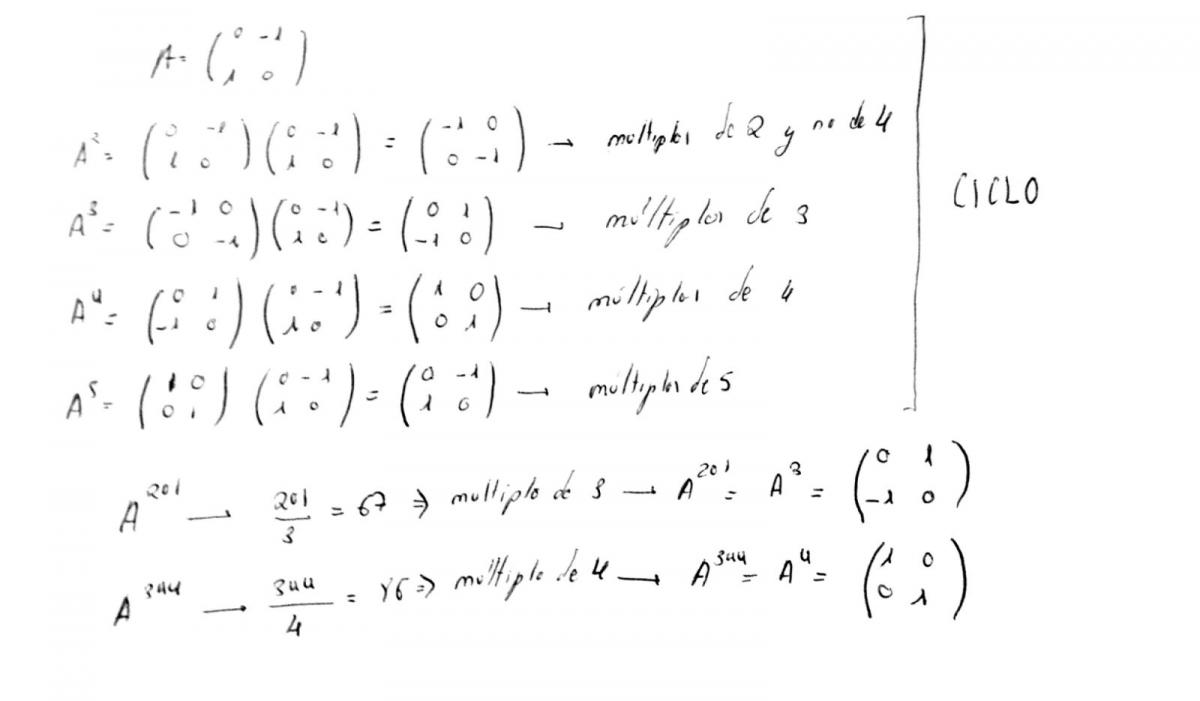 A = ( 0 -1 ; 1 0 )
A² = ( 0 -1 ; 1 0 ) ( 0 -1 ; 1 0 ) = ( -1 0 ; 0 -1 ) → multiplos de 2 y no de 4
A³ = ( -1 0 ; 0 -1 ) ( 0 -1 ; 1 0 ) = ( 0 1 ; -1 0 ) → múltiplos de 3
A⁴ = ( 0 1 ; -1 0 ) ( 0 -1 ; 1 0 ) = ( 1 0 ; 0 1 ) → múltiplos de 4
A⁵ = ( 1 0 ; 0 1 ) ( 0 -1 ; 1 0 ) = ( 0 -1 ; 1 0 ) → múltiplos de 5
CICLO
A²⁰¹ → 201/3 = 67 ⇒ multiplo de 3 → A²⁰¹ = A³ = ( 0 1 ; -1 0 )
A³⁴⁴ → 344/4 = 86 ⇒ múltiplo de 4 → A³⁴⁴ = A⁴ = ( 1 0 ; 0 1 )